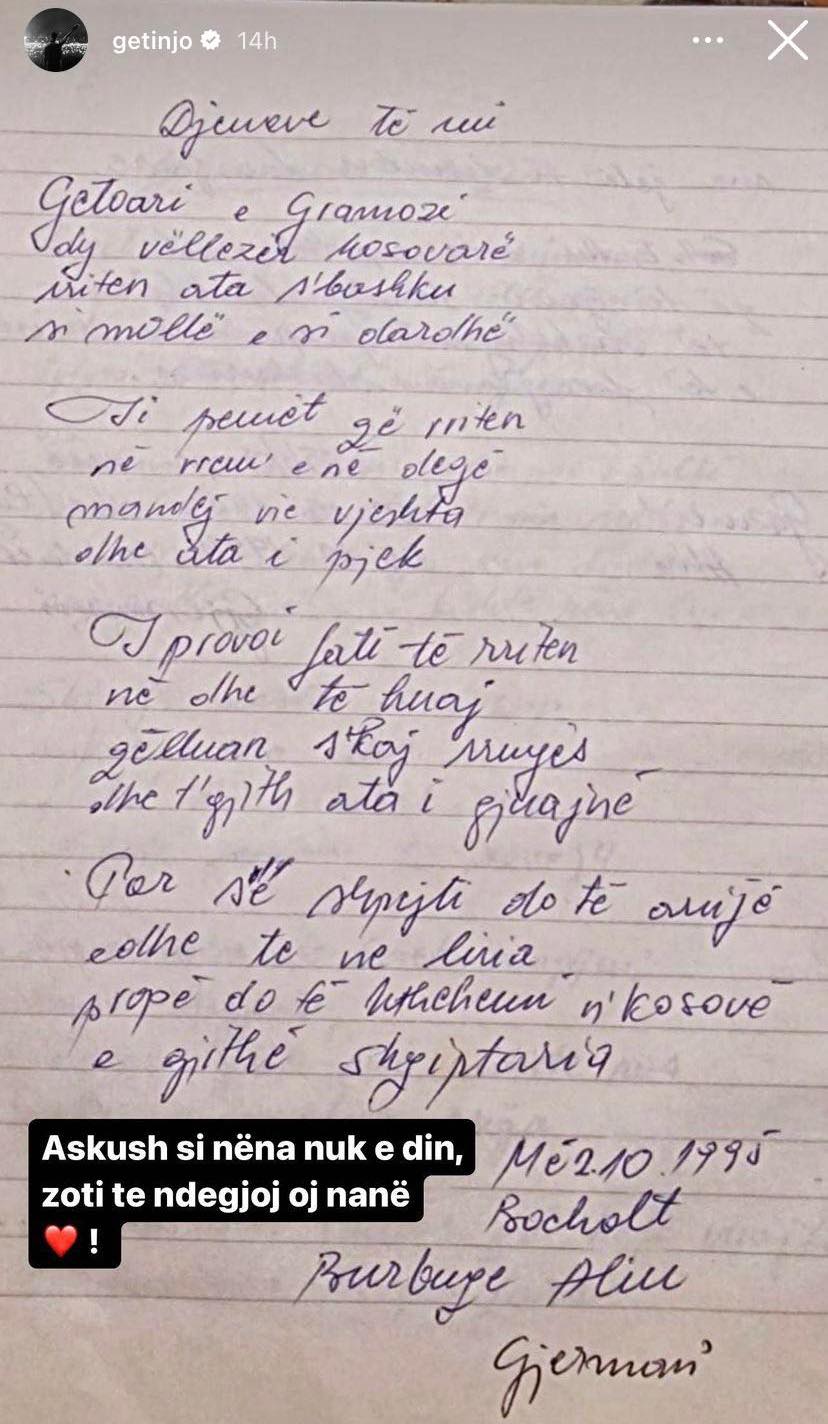 getinjo 14h
Djemve të mi
Getoari e Gramozi
dy vëllezër kosovarë
rriten ata s'bashku
si mollë e si dardhë
Si pemët që rriten
në rram' e në degë
mandej vie vjeshta
dhe ata i pjek
I provoi fati të rriten
në dhe të huaj
qëlluan skaj rrugës
dhe t'gjith ata i gjuajnë
Por së shpejti do të arrijë
edhe te ne liria
propë do të kthehemi n'kosovë
e gjithë shqiptaria
Askush si nëna nuk e din,
zoti te ndegjoj oj nanë
❤️ !
Më 2.10.1995
Bocholt
Burbuqe Aliu
Gjermani